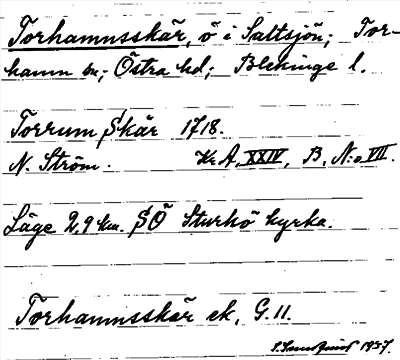 Torhamnsskär, ö i Saltsjön; Tor-
hamn sn; Östra hd; Blekinge l.
Torrum Skär 1718.
N. Ström. Kr A, XXIV, B, N:o VII.
Läge 2,9 km. SÖ Sturkö kyrka.
Torhamnsskär ek. G. 11.
1937.